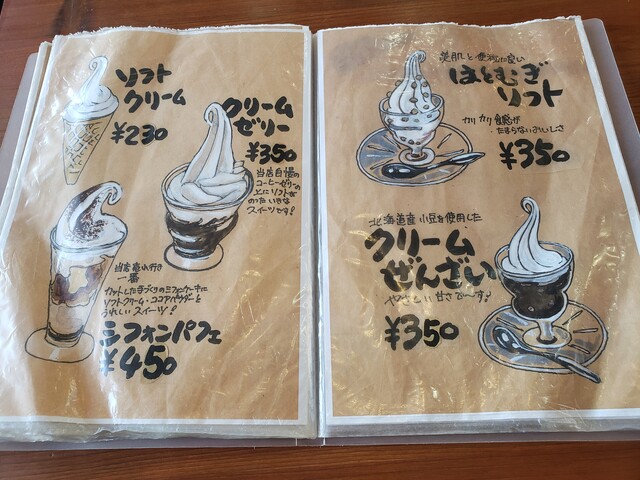 ソフト
クリーム
¥230
クリーム
ゼリー
¥350
当店自慢の
コーヒーゼリーの
上にソフトが
のったいきな
スイーツです!
当店売れ行き
一番
カットした手づくりのシフォンケーキに
ソフトクリーム・ココアパウダーと
うれしいスイーツ!
シフォンパフェ
¥450
美肌と便秘に良い
はとむぎ
ソフト
カリカリ食感が
たまらないおいしさ
¥350
北海道産小豆を使用した
クリーム
ぜんざい
やさしい甘さで〜す!
¥350